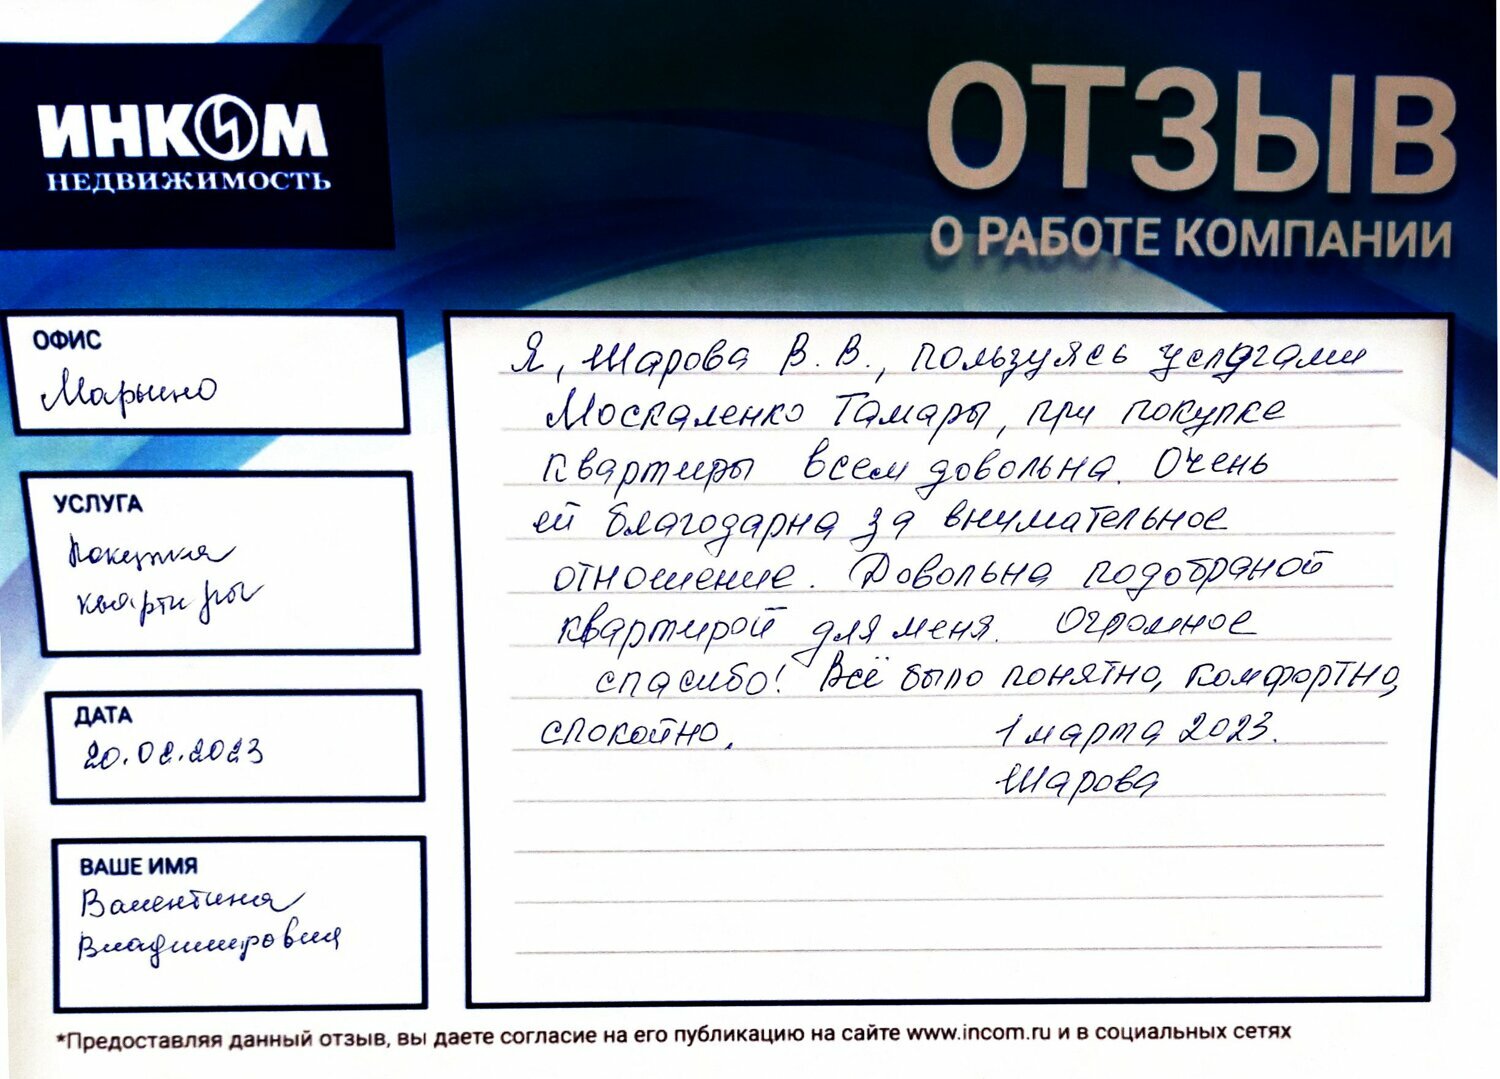 ИНКОМ
НЕДВИЖИМОСТЬ
ОТЗЫВ
О РАБОТЕ КОМПАНИИ
ОФИС
Марьино
УСЛУГА
Покупка
квартиры
ДАТА
20.02.2023
ВАШЕ ИМЯ
Валентина
Владимировна
Я, Шарова В. В., пользуясь услугами
Москаленко Тамары, при покупке
квартиры всем довольна. Очень
ей благодарна за внимательное
отношение. Довольна подобраной
квартирой для меня. Огромное
спасибо! Всё было понятно, комфортно,
спокойно. 1 марта 2023.
Шарова
*Предоставляя данный отзыв, вы даете согласие на его публикацию на сайте www.incom.ru и в социальных сетях